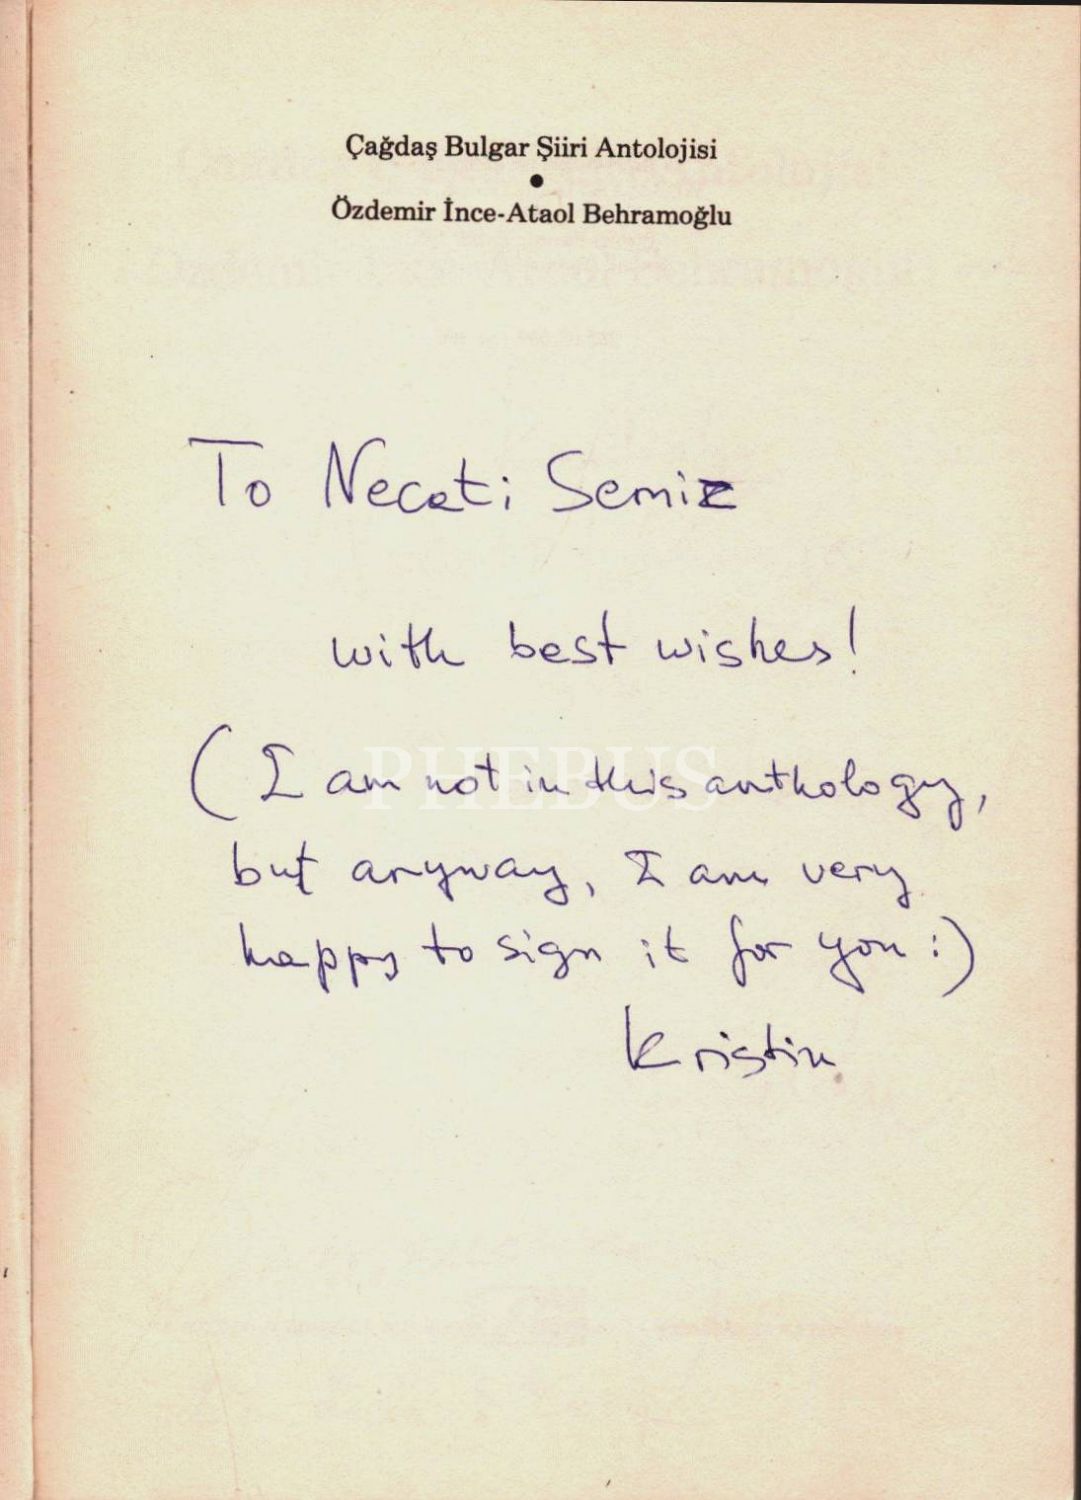 Çağdaş Bulgar Şiiri Antolojisi
●
Özdemir İnce-Ataol Behramoğlu
To Necati Semiz
with best wishes!
PHEBUS
(I am not in this anthology,
but anyway, I am very
happy to sign it for you :)
Kristin